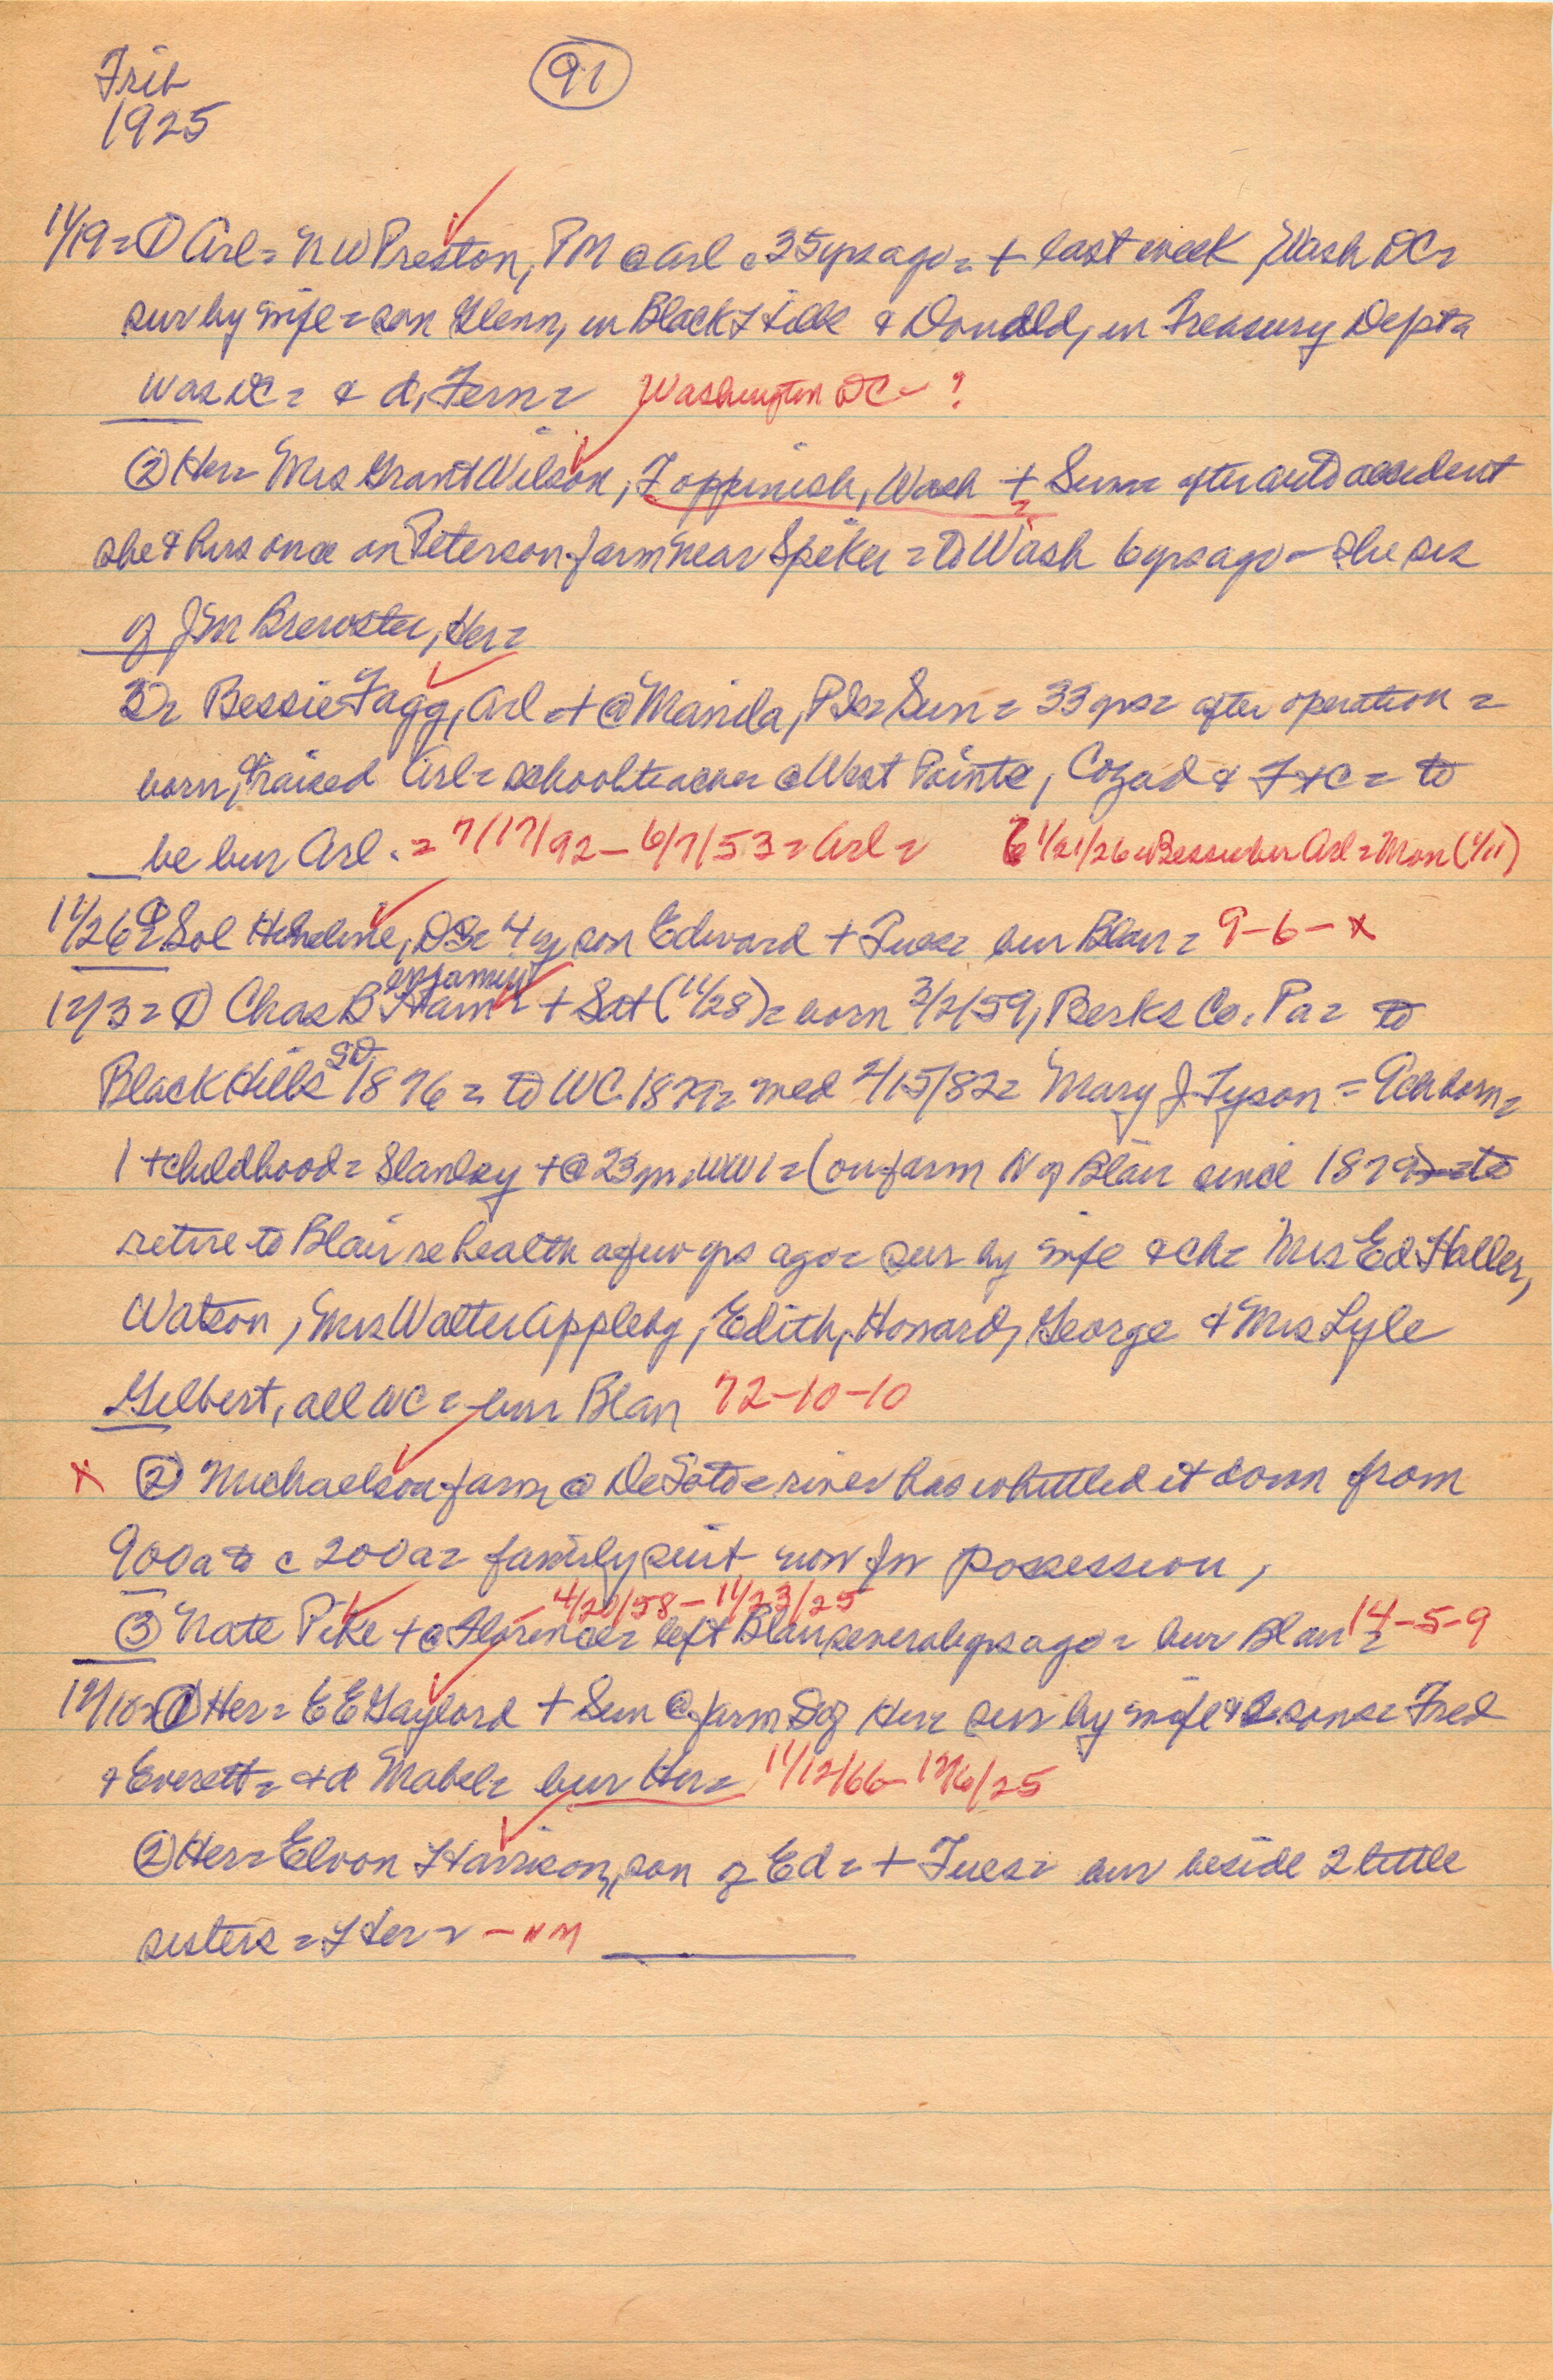 Trib 91
1925
11/19 = ① Arl = N W Preston, PM @ Arl c 35 yrs ago = + last week, Wash DC =
sur by wife = son Glenn, in Black Hills & Donald, in Treasury Dept @
Was DC = & d, Fern = Washington DC - ?
② Her = Mrs Grant Wilson, Toppinish, Wash + Sun = after auto accident
she & hus once on Peterson farm near Spiker = to Wash 6 yrs ago - she sis
of Jim Brewster, Her =
3 = Bessie Fagg, Arl = + @ Manila, PI = Sun = 33 yrs = after operation =
born & raised Arl = school teacher @ West Pointe, Cozad & Ft C = to
be bur Arl. = 7/17/92 - 6/7/53 = Arl = 1/21/26 = Bessie bur Arl = Mon (1/11)
11/26 = Sol Hineline, DS = 4 y son Edward + Tues = bur Blair = 9-6-x
enjamin
12/3 = ① Chas B Ham = + Sat (11/28) = born 3/2/59, Berks Co. Pa = to
SD
Black Hills 1876 = to WC 1879 = med 2/15/82 = Mary J. Tyson = 9 ch born =
1 + childhood = Stanley + @ 23 yrs WW1 = (on farm N of Blair since 1879) = to
retire to Blair re health a few yrs ago = sur by wife & ch = Mrs Ed Haller,
Watson, Mrs Walter Appleby, Edith, Howard, George & Mrs Lyle
Gilbert, all WC = bur Blair 72-10-10
x ② Michaelson farm @ DeSoto = river has whittled it down from
900a to c 200a = family suit now for possession,
4/20/58 - 11/23/25
③ Nate Pike + @ Florence = left Blair several yrs ago = bur Blair = 14-5-9
12/10 = ① Her = E E Gaylord + Sun @ farm S of Her sur by wife & 2 sons = Fred
& Everett = & d Mabel = bur Her = 11/12/66 - 12/6/25
② Her = Elvon Harrison, son of Ed = + Tues = bur beside 2 little
sisters = Her = - NM